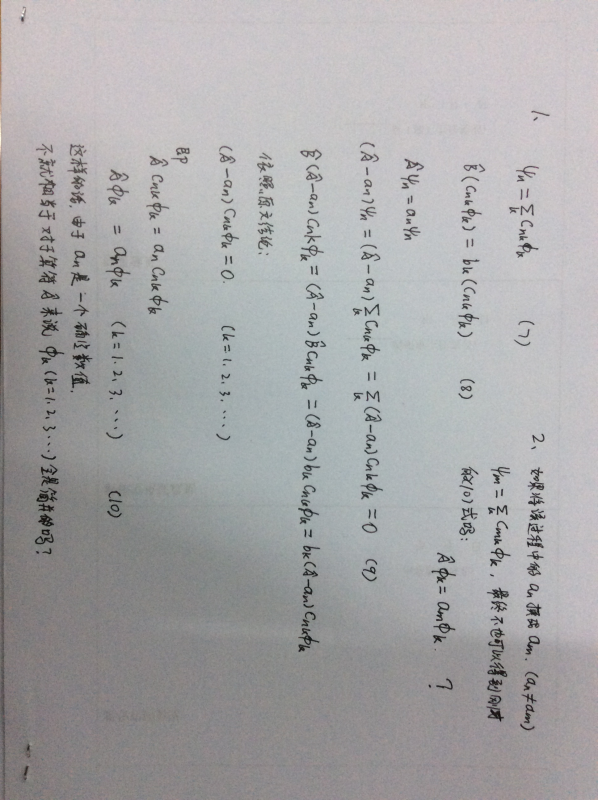 1、 ψn = Σk Cnk φk (7)
B̂(Cnk φk) = bk (Cnk φk) (8)
Âψn = an ψn
(Â - an)ψn = (Â - an) Σk Cnk φk = Σk (Â - an) Cnk φk = 0 (9)
B̂(Â - an) Cnk φk = (Â - an) B̂ Cnk φk = (Â - an) bk Cnk φk = bk (Â - an) Cnk φk
依照原文结论:
(Â - an) Cnk φk = 0. (k = 1, 2, 3, ...)
即
Â Cnk φk = an Cnk φk
Âφk = an φk (k = 1, 2, 3, ...) (10)
这样的话, 由于 an 是一个确定数值,
不就相当于对于算符Â来说, φk (k = 1, 2, 3, ...) 全是简并的吗?
2、 如果将该过程中的 an 换成 am, (an ≠ am)
ψm = Σk Cmk φk, 最终不也可以得到同时
(10)式吗:
Âφk = am φk. ?